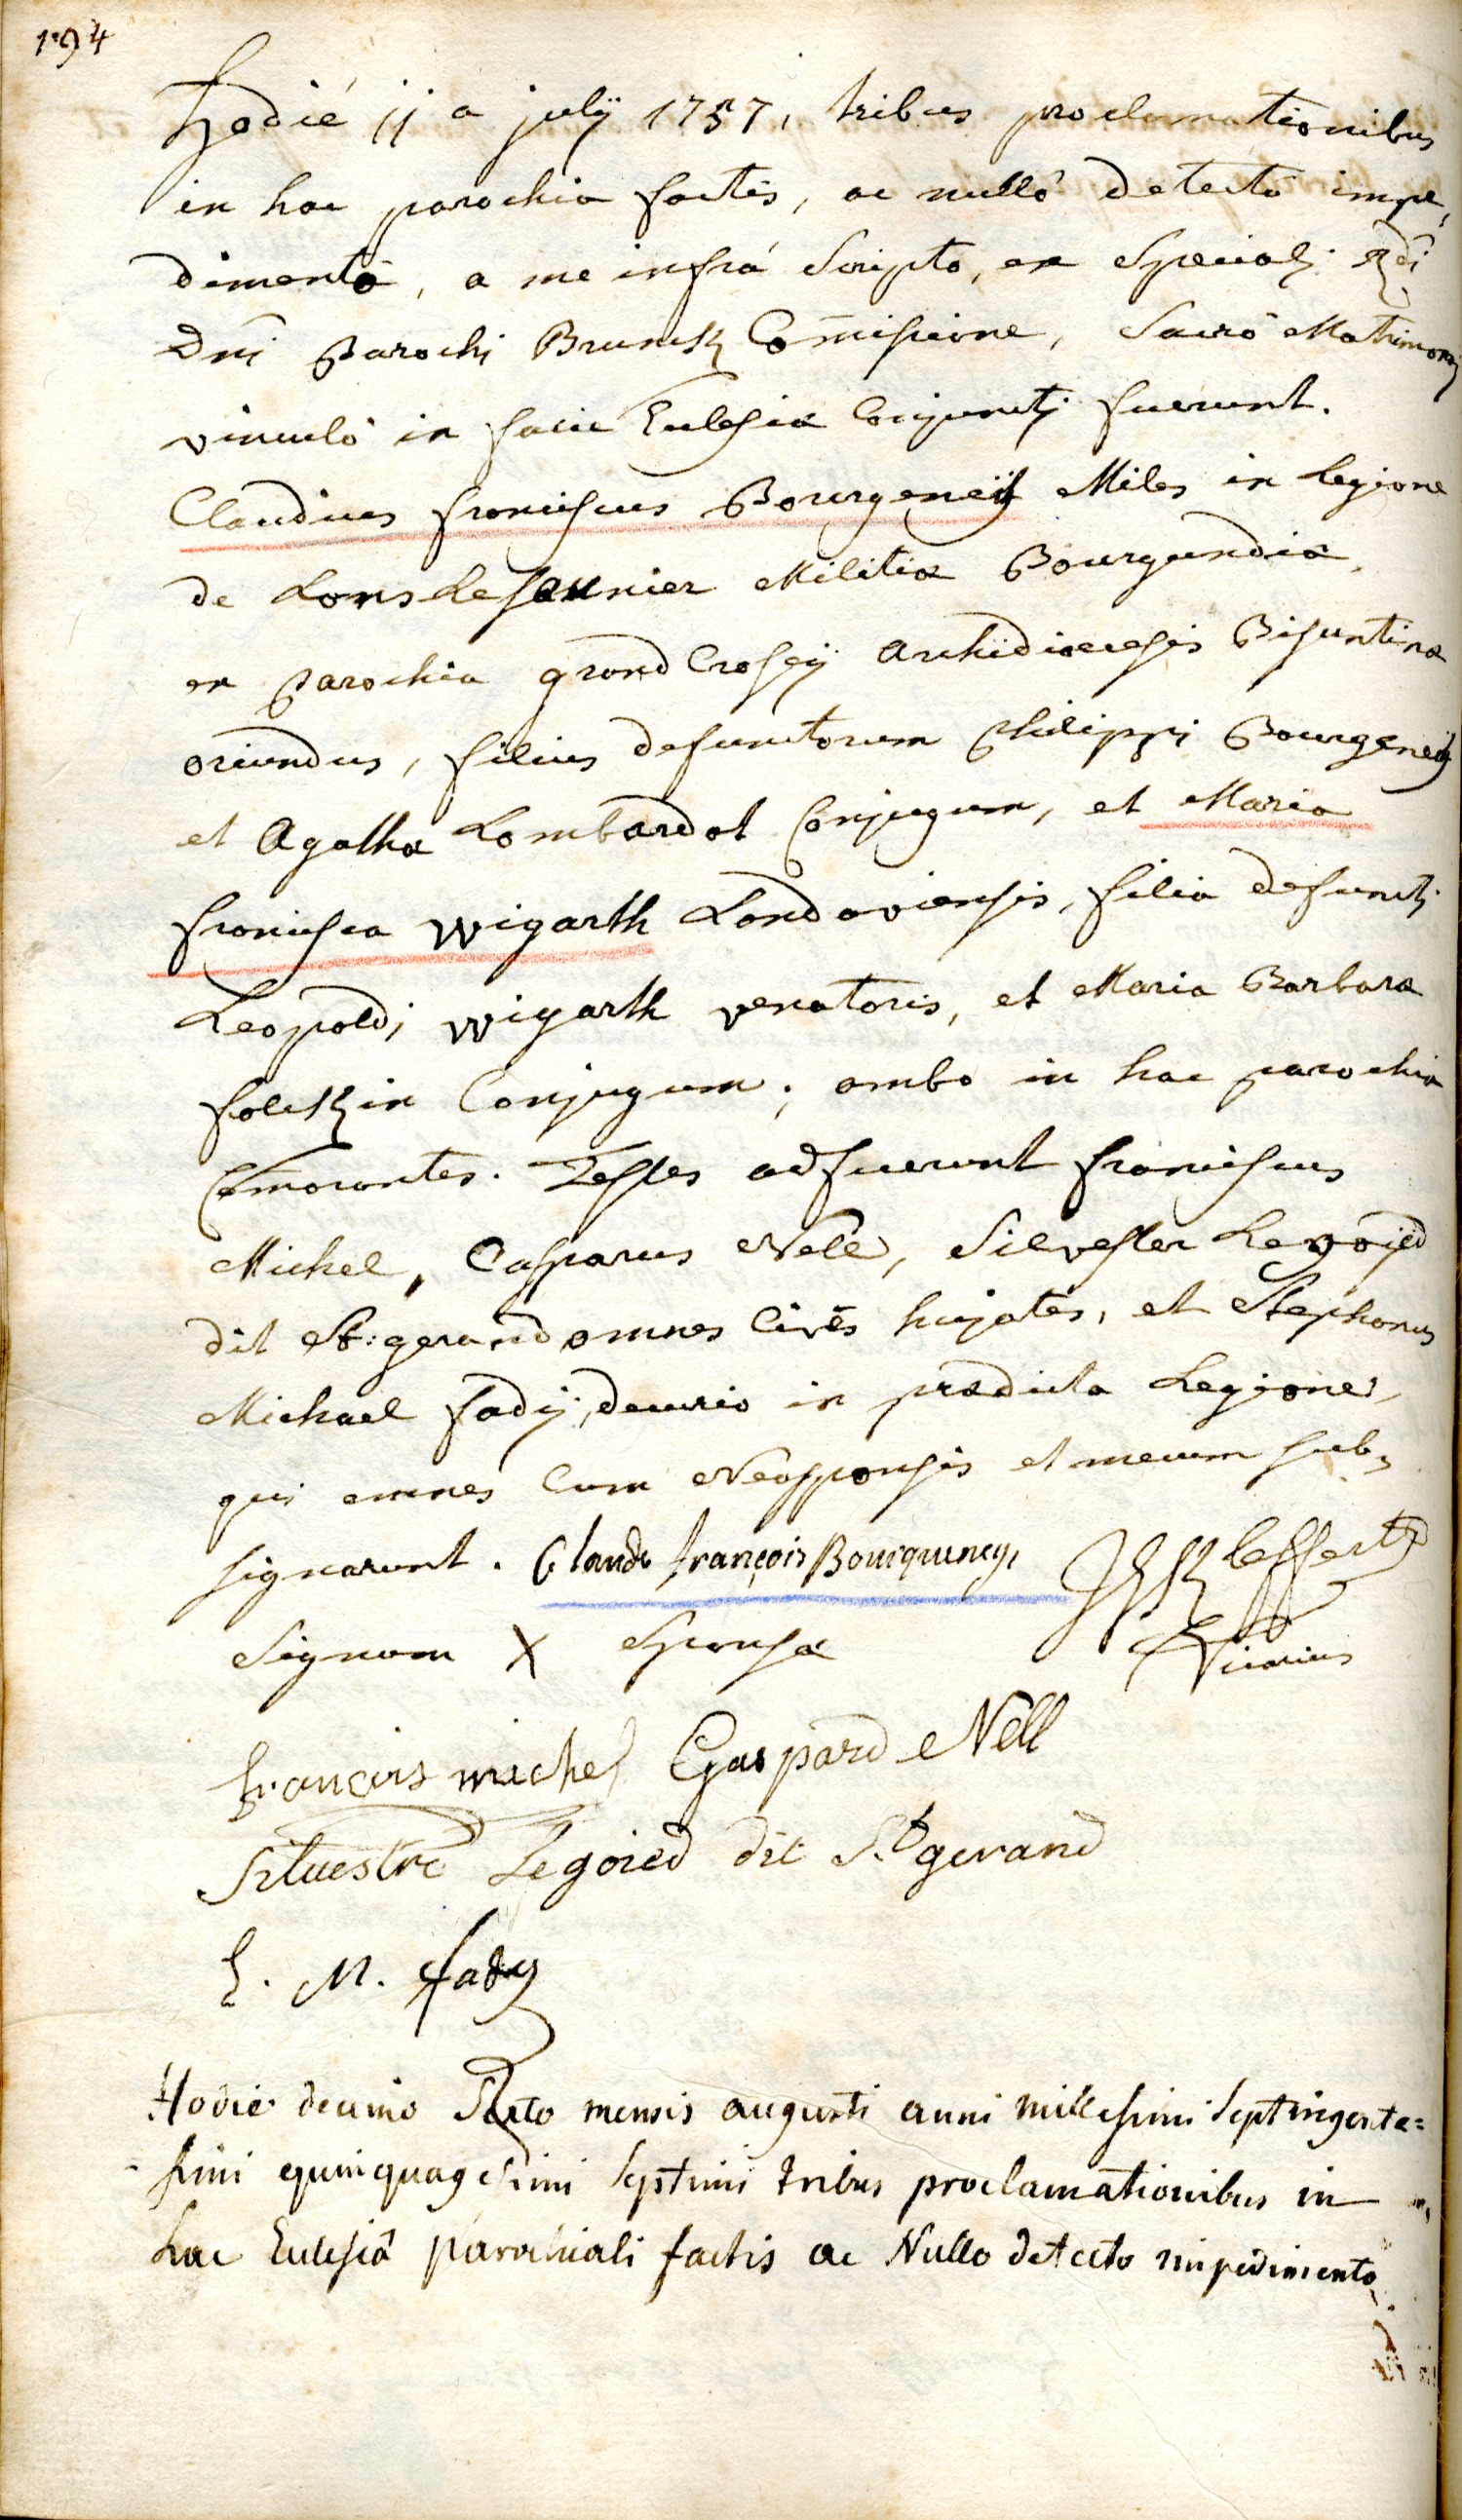 194
Hodié 11a julÿ 1757, tribus proclamationibus
in hac parochia factis, ac nullô detectô impe,
dimentô, a me infrá Scripto, ex Speciali Rdi
Dni Parochi Brunck Com̄issione, Sacrô Matrimonij
vinculô in facie Ecclesiæ Conjuncti fuerunt.
Claudius franciscus Bourgeneÿ Miles in Legione
de Lons Le Saunier Militiæ Bourgundiæ,
ex Parochia grand Croseÿ Archidiœcesis Bisuntinæ
oriundus, filius defunctorum Philippi Bourgeneÿ
et Agatha Lombardot Conjugum, et Maria
francisca Wigarth Landaviensis, filia defuncti
Leopoldi Wigarth venatoris, et Maria Barbara
Conjugum; ambo in hac parochia
Com̄orantes. Testes adfuerunt franciscus
Michel, Casparus Nell, Silvester Legoÿed
dit St: gerand omnes Cives hujates, et Stephanus
Michael fadÿ, decurio in prædicta Legione,
qui omnes Cum Neosponsis et mecum sub,
signarunt. Claude françois Bourqueney,
Signum X Sponsæ
Vicarius
françois michel Gaspard Nell
Siluestre Legoied dit St gerand
E. M. fady
Hodie decimo Sexto mensis augusti anni millesimi Septingente=
simi quinquagesimi Septimi tribus proclamationibus in
hac Ecclesiâ parochiali factis ac Nullo detecto impedimento